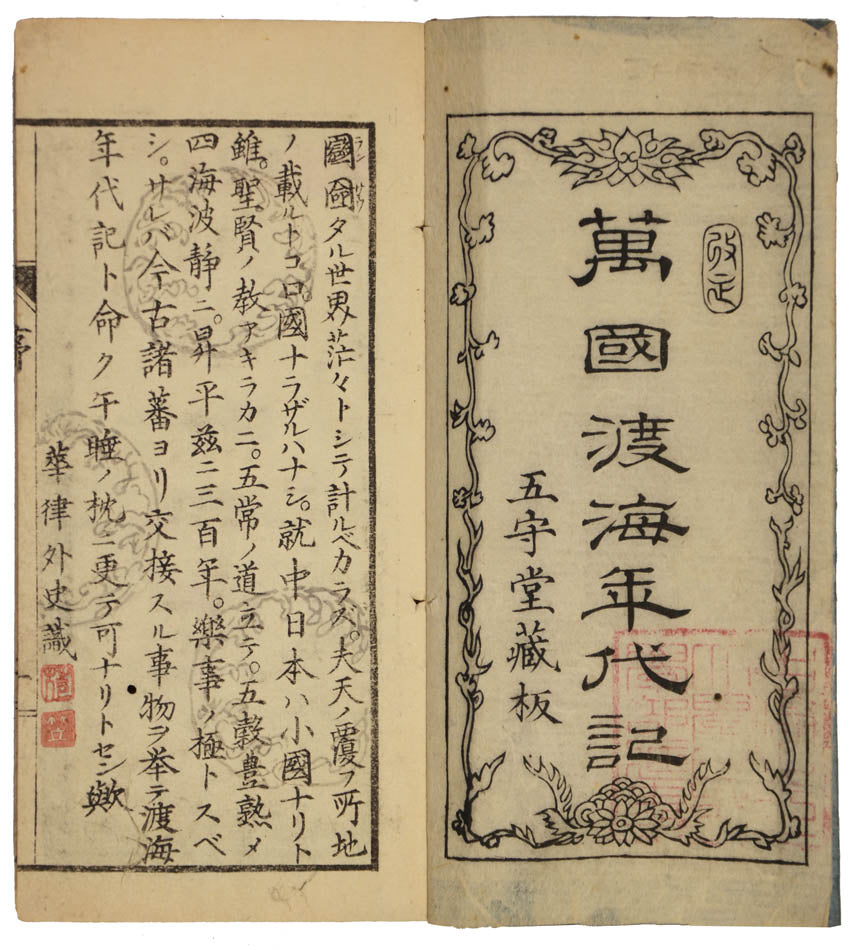 改定
萬國渡海年代記
五守堂藏板
タル世界茫々トシテ計ルベカラズ。夫天ノ覆フ所地
ノ載ルトコロ。國ナラザルハナシ。就中日本ハ小國ナリト
雖。聖賢ノ教アキラカニ。五常ノ道 五穀豊熟メ
四海波静ニ。昇平玆ニ三百年。樂事ノ極トスベ
シ。サレバ今古諸蕃ヨリ交接スル事物ヲ挙テ渡海
年代記ト命ク午睡ノ枕ニ更テ可ナリトセン歟
華律外史識